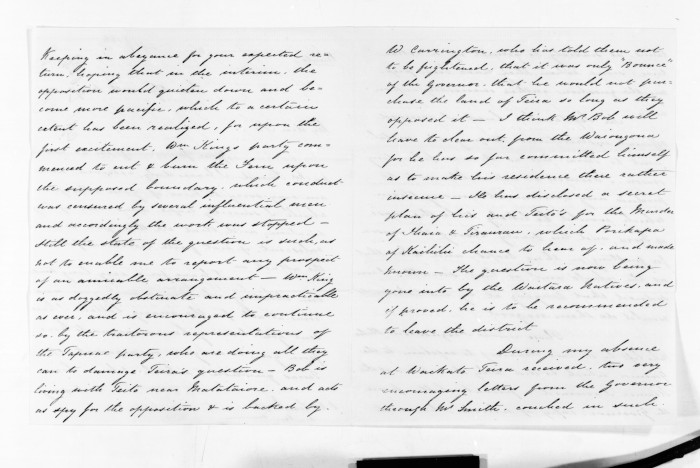 Keeping in abeyance for your expected re-
turn, hoping that in the interim, the
opposition would quieten down and be-
come more pacific, which to a certain
extent has been realized, for upon the
first excitement, Wm Kings party com-
menced to cut & burn the Fern upon
the supposed boundary, which conduct
was censured by several influential men
and accordingly the work was stopped -
Still the state of the question is such, as
not to enable me to report any prospect
of an amicable arrangement - Wm King
is as doggedly obstinate and impracticable
as ever, and is encouraged to continue
so by the traitorous representations of
the Tapuae party, who are doing all they
can to damage Teira's question - Bob is
living with Teito near Mataitaiore, and acts
as spy for the opposition & is backed by.
W Carrington, who has told them not
to be frightened, that it was only "Bounce"
of the Governor, that he would not pur-
chase the land of Teira so long as they
opposed it - I think Mr Bob will
have to clear out, from the Waiongona
for he has so far committed himself
as to make his residence there rather
insecure - He has disclosed a secret
plan of his and Teito's for the Murder
of Ihaia & Tiraurau, which
of Kaititi chance to hear of, and made
known - The question is now being
gone into by the Waitara Natives, and
if proved, he is to be recommended
to leave the district
During my absence
at Waikato Teira received, two very
encouraging letters from the Governor
through Mr Smith, couched in such